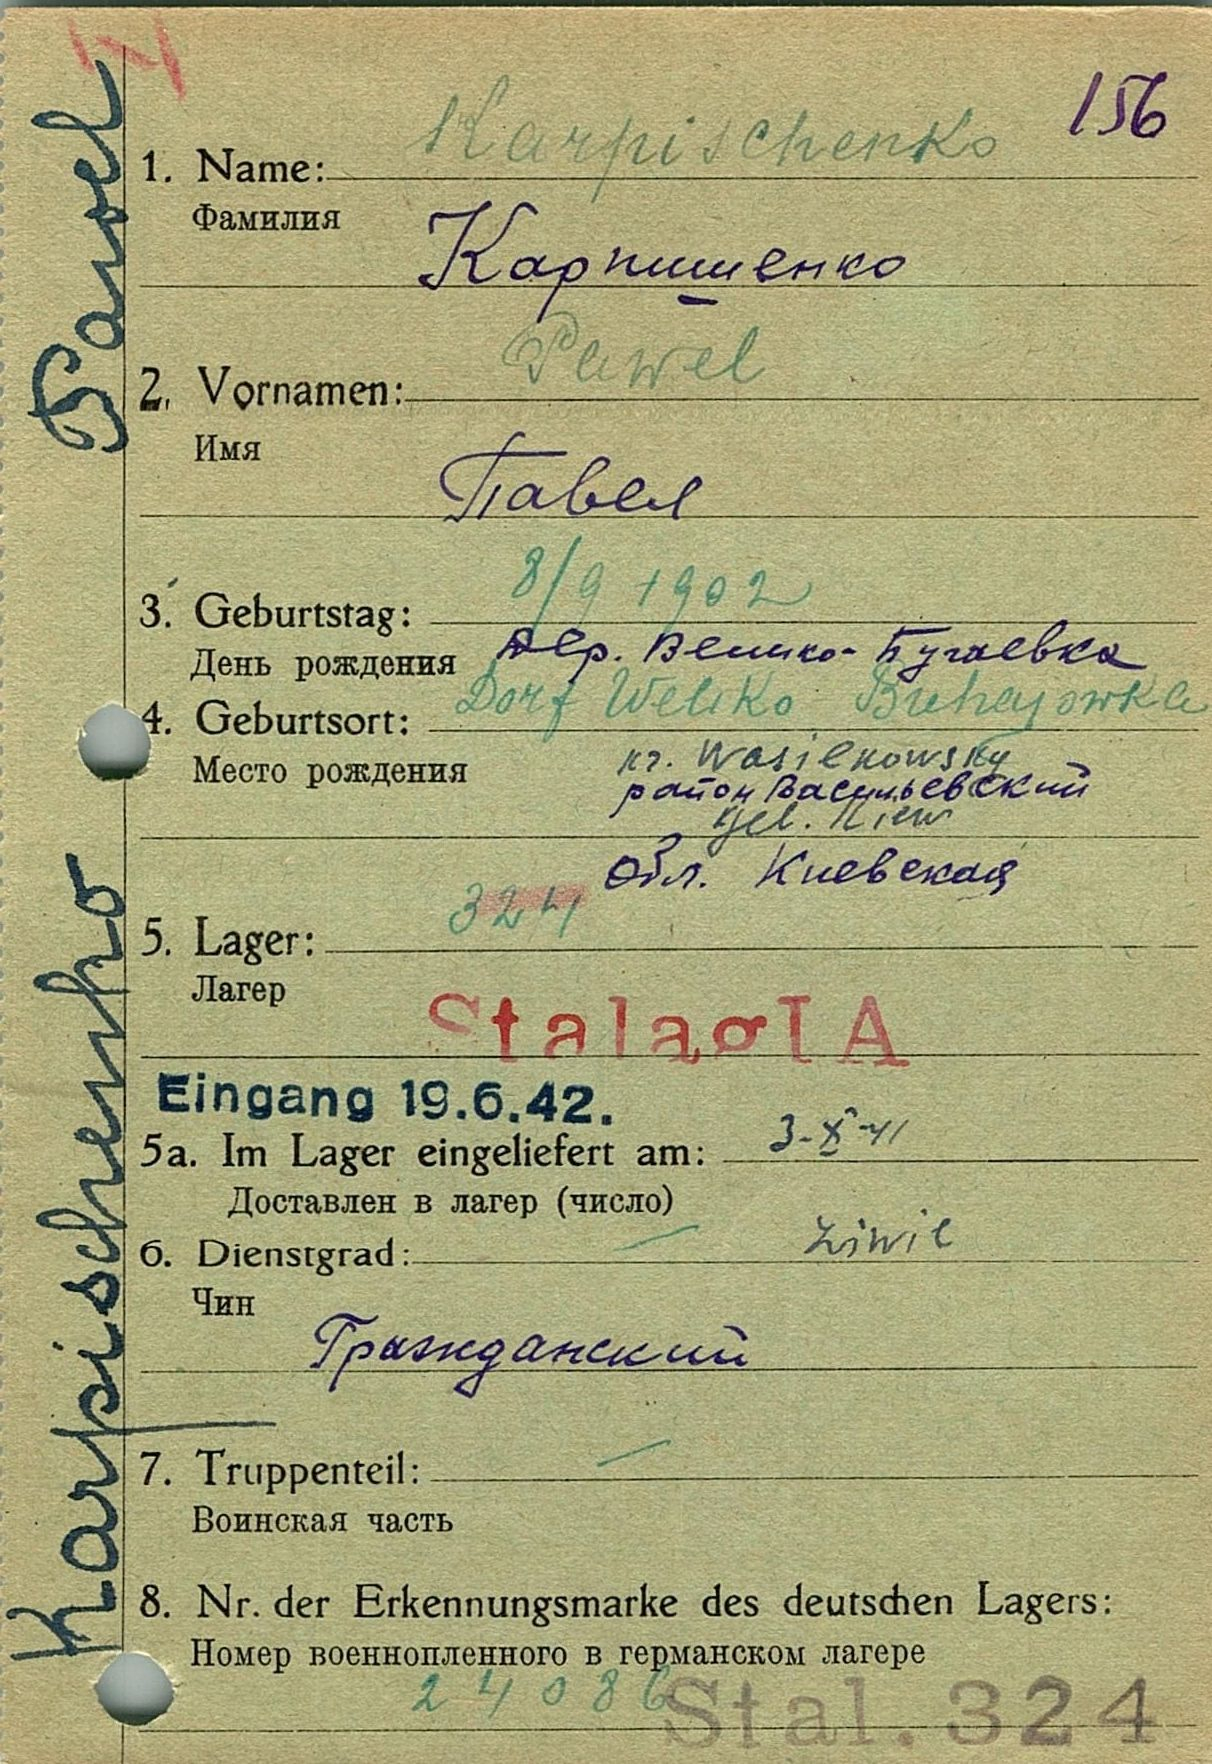 156
Karpischenko Pavel
Karpischenko
1. Name:
Фамилия
Карпишенко
Pawel
2. Vornamen:
Имя
Павел
8/9 1902
3. Geburtstag:
День рождения
Дер. Велико-Бугаевка
Dorf Weliko Buhajowka
4. Geburtsort:
Место рождения
кr. Wasilkowsky
район Васильевский
Gel. Kiew
Обл. Киевская
324
5. Lager:
Лагер
Stalag IA
Eingang 19.6.42.
5a. Im Lager eingeliefert am: 3-X-41
Доставлен в лагер (число)
6. Dienstgrad: Ziwil
Чин
Гражданский
7. Truppenteil: —
Воинская часть
8. Nr. der Erkennungsmarke des deutschen Lagers:
Номер военнопленного в германском лагере
24086
Stal. 324